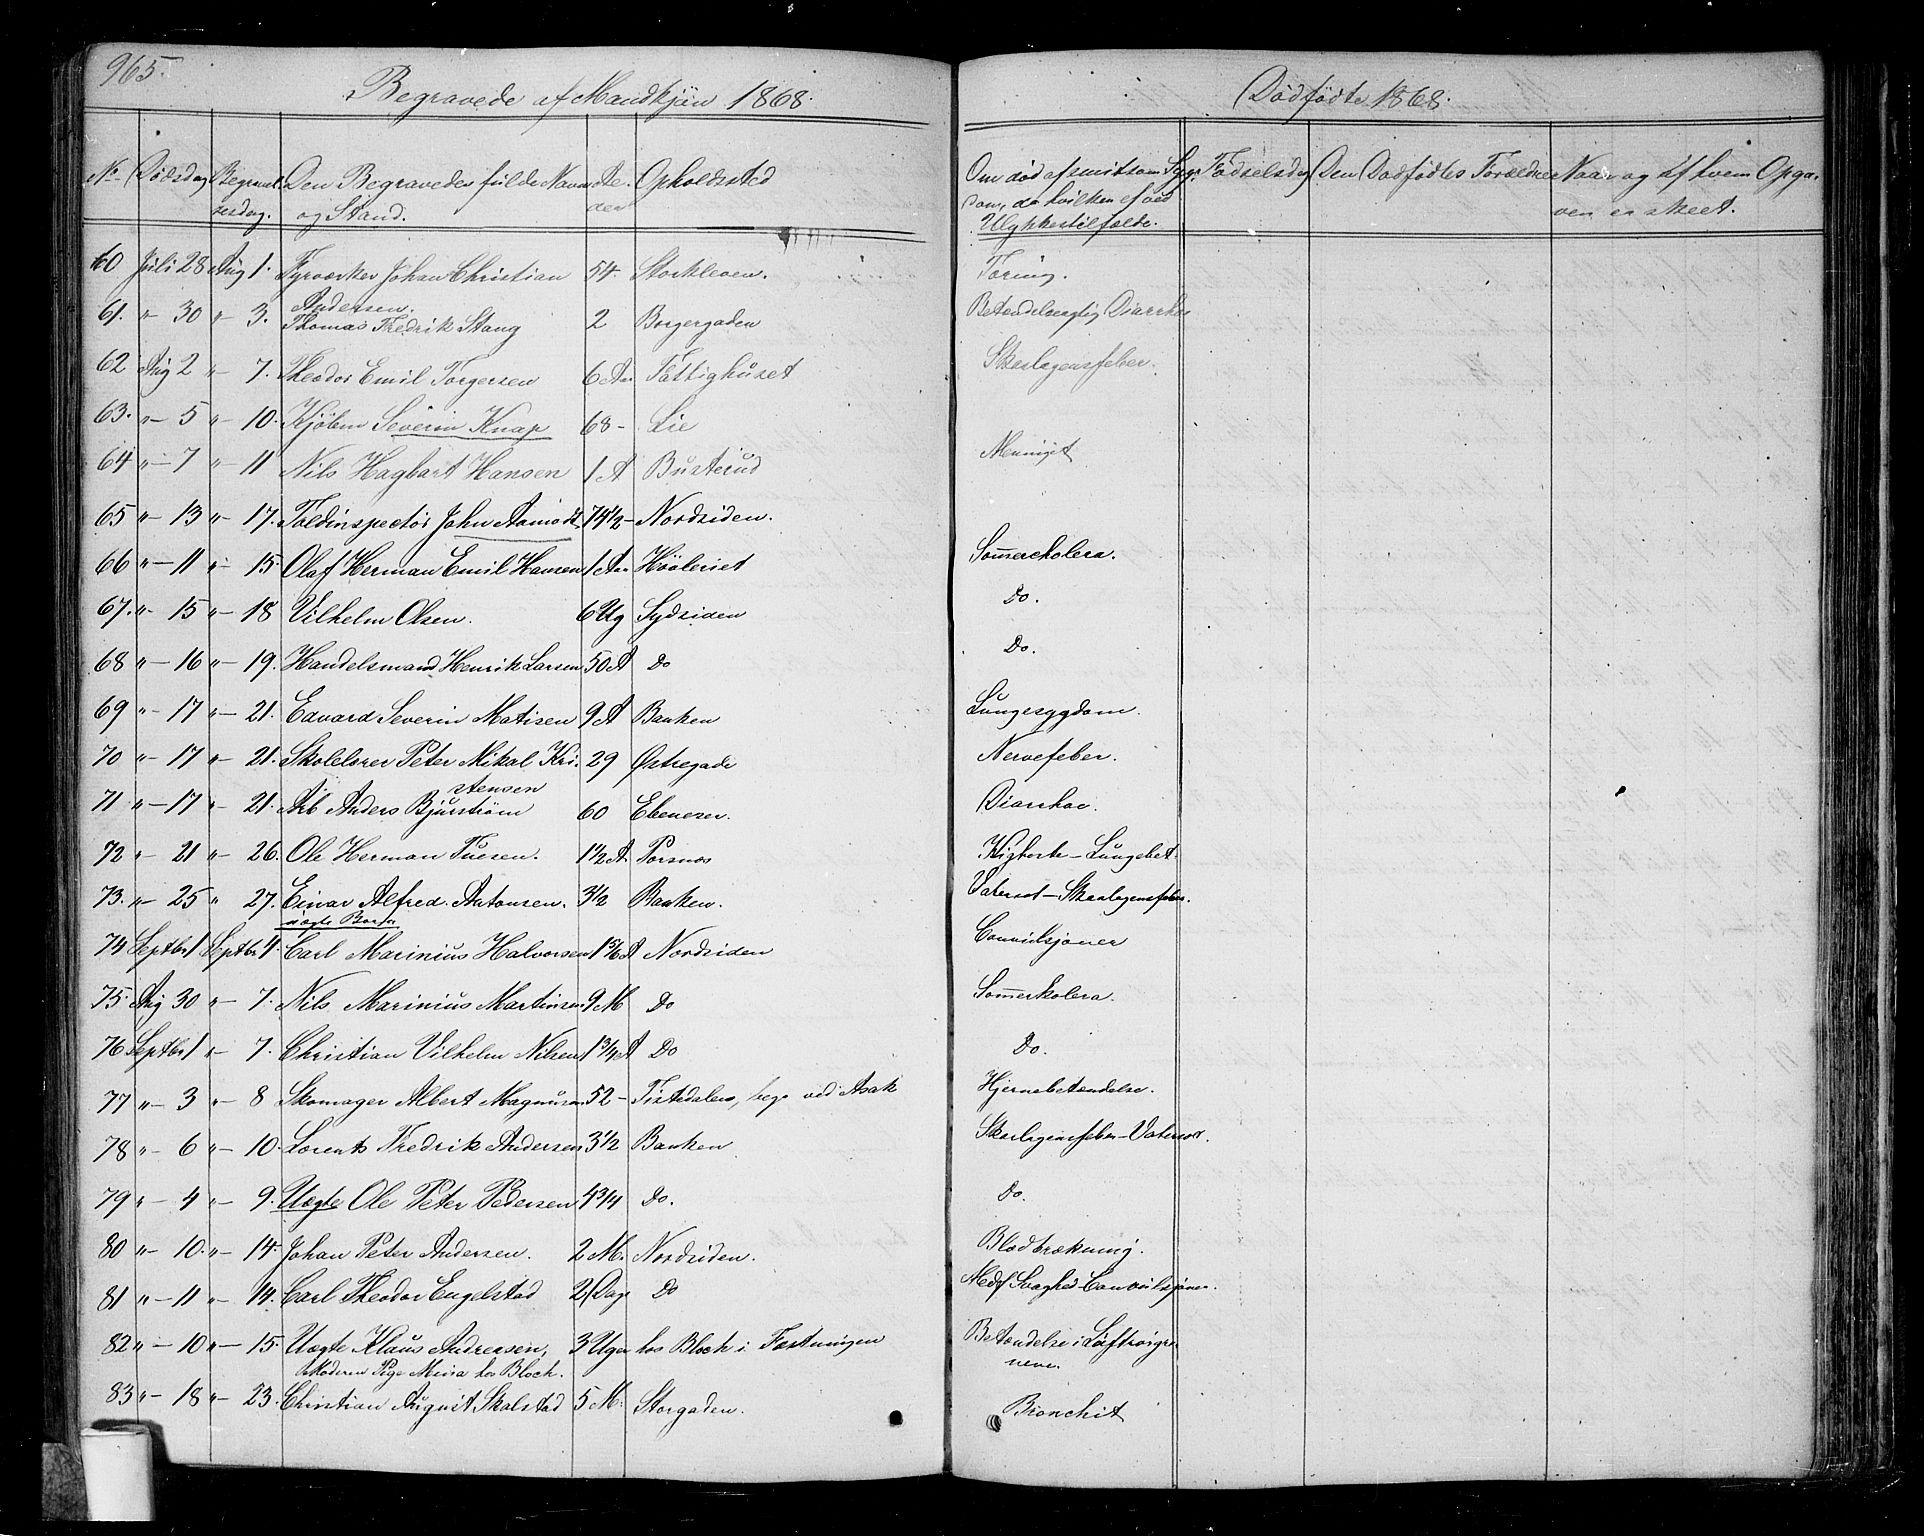 965.
Begravede af Mandkjön 1868.
No Dödsdag Begravelsesdag. Den Begravedes fulde Navn og Stand. Alder Opholdssted
60 Juli 28 Aug 1. Fyrværker Johan Christian Andersen. 54. Storkleven.
61. " 30 " 3. Thomas Fredrik Stang 2 Borgergaden
62 Aug 2 " 7. Theodor Emil Torgersen 6 Aar Fattighuset
63. " 5 " 10. Kjöbm Severin Knap 68 - Lie
64 " 7 " 11 Nils Hagbart Hansen 1 A Busterud
65 " 13 " 17. Toldinspectör John Aamodt 74 1/2 - Nordsiden.
66 " 11 " 15. Olaf Herman Emil Hansen 1 Aar Hööleriet
67. " 15 " 18 Vilhelm Olsen. 6 Ug Sydsiden
68 " 16 " 19. Handelsmand Henrik Larsen 50 A Do
69 " 17 " 21. Edvard Severin Matisen 9 A Banken
70 " 17 " 21. Skolelærer Peter Mikal Kristensen 29 Østregade
71 " 17 " 21. Arb Anders Bjurström 60 Ebeneser.
72 " 21 " 26. Ole Herman Tuesen. 1 1/2 A Porsnes
73. " 25 " 27. Einar Alfred Antonsen. 3 1/2 Banken.
uægte Barn
74 Septbr 1 Septbr 4. Carl Marinius Halvorsen 1 5/6 A Nordsiden
75. Aug 30 " 7. Nils Marinius Martinsen 9 M Do
76 Septbr 1 " 7. Christian Vilhelm Nilsen 1 3/4 A Do
77 " 3 " 8 Skomager Albert Magnusen 52 - Tistedalen, begr ved Asak
78 " 6 " 10. Lorents Fredrik Andersen 3 1/2 Banken
79 " 4 " 9. Uægte Ole Peter Pedersen 4 3/4 Do.
80 " 10. " 14. Johan Peter Andersen. 2 M. Nordsiden.
81 " 11 " 14. Carl Theodor Engelstad 2 Dag Do
82 " 10 " 15. Uægte Klaus Andreasen, 3 Uger hos Bloch i Fæstningen
Moderen Pige Mina hos Bloch.
83 " 18 " 23. Christian August Skolstad 5 M. Storgaden.
Dödfödte 1868.
Om död af smitsom Sygdom, da hvilken ef ved Ulykkestilfælde. Födselsdag Den Dödfödtes Forældre Naar og af hvem Opgaven er skeet.
Tæring.
Betændelsagtig Diarrhoe
Skarlagensfeber.
Meningit
Sommercholera.
Do.
Do.
Lungesygdom.
Nervefeber.
Diarrhoe.
Kighoste - Lungebet.
Vatersot - Skarlagensfeber.
Convulsjoner
Sommerkolera.
Do.
Hjernebetændelse.
Skarlagensfeber - Vatersot.
Do.
Blodbrækning.
Medf Svaghed - Convulsjoner.
Betændelse i Luftrörgrenene.
Bronchit